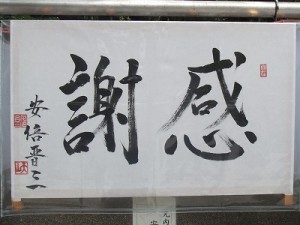 感謝
安倍晋三